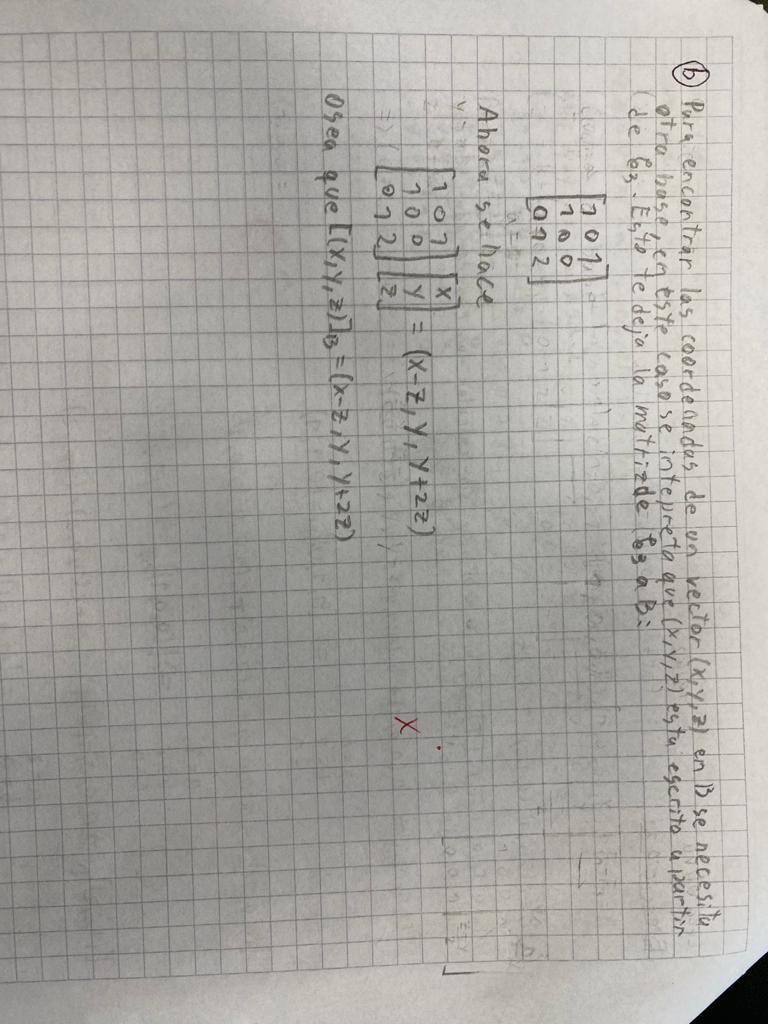 b) Para encontrar las coordenadas de un vector (x,y,z) en B se necesita
otra base, en este caso se intepreta que (x,y,z) esta escrito a partir
(de ℓ3. Esto te deja la matriz de ℓ3 a B:
[1 0 1]
[1 0 0]
[0 1 2]
Ahora se hace
[1 0 1] [x]
[1 0 0] [y] = (x-z, y, y+2z)
[0 1 2] [z]
Osea que [(x,y,z)]B = (x-z, y, y+2z)
X